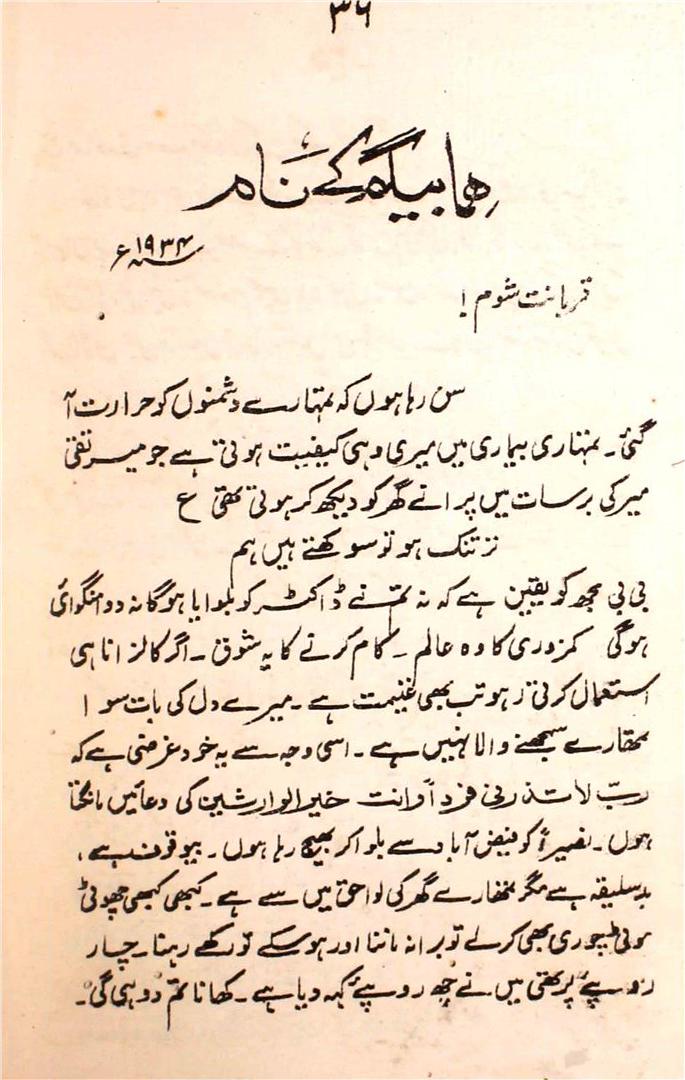 ۳۶
ہما بیگم کے نام
۱۹۳۴ء
قربانت شوم!
سن رہا ہوں کہ تمہارے دشمنوں کو حرارت آ
گئی۔ تمہاری بیماری میں میری وہی کیفیت ہوتی ہے جو میر تقی
میر کی برسات میں پرانے گھر کو دیکھ کر ہوتی تھی ع
تر تنک ہو تو سوکھتے ہیں ہم
بی بی مجھ کو یقین ہے کہ نہ تم نے ڈاکٹر کو بلوایا ہوگا نہ دوا منگوائی
ہوگی کمزوری کا وہ عالم۔ کام کرنے کا یہ شوق۔ اگر کالزانا ہی
استعمال کرتی رہو تب بھی غنیمت ہے۔ میرے دل کی بات سوا
تمھارے سمجھنے والا نہیں ہے۔ اسی وجہ سے یہ خود غرضی ہے کہ
ربّ لا تذرنی فرداً وانت خیر الوارثین کی دعائیں مانگتا
ہوں۔ نصیراً کو فیض آباد سے بلوا کر بھیج رہا ہوں۔ بیوقوف ہے،
بدسلیقہ ہے مگر تمھارے گھر کی لواحق میں سے ہے۔ کبھی کبھی چھوٹی
موٹی چوری بھی کرلے تو برا نہ ماننا اور ہوسکے تو رکھے رہنا۔ چار
روپیے پر تھی میں نے چھ روپیے کہہ دیا ہے۔ کھانا تم دو ہی گی۔